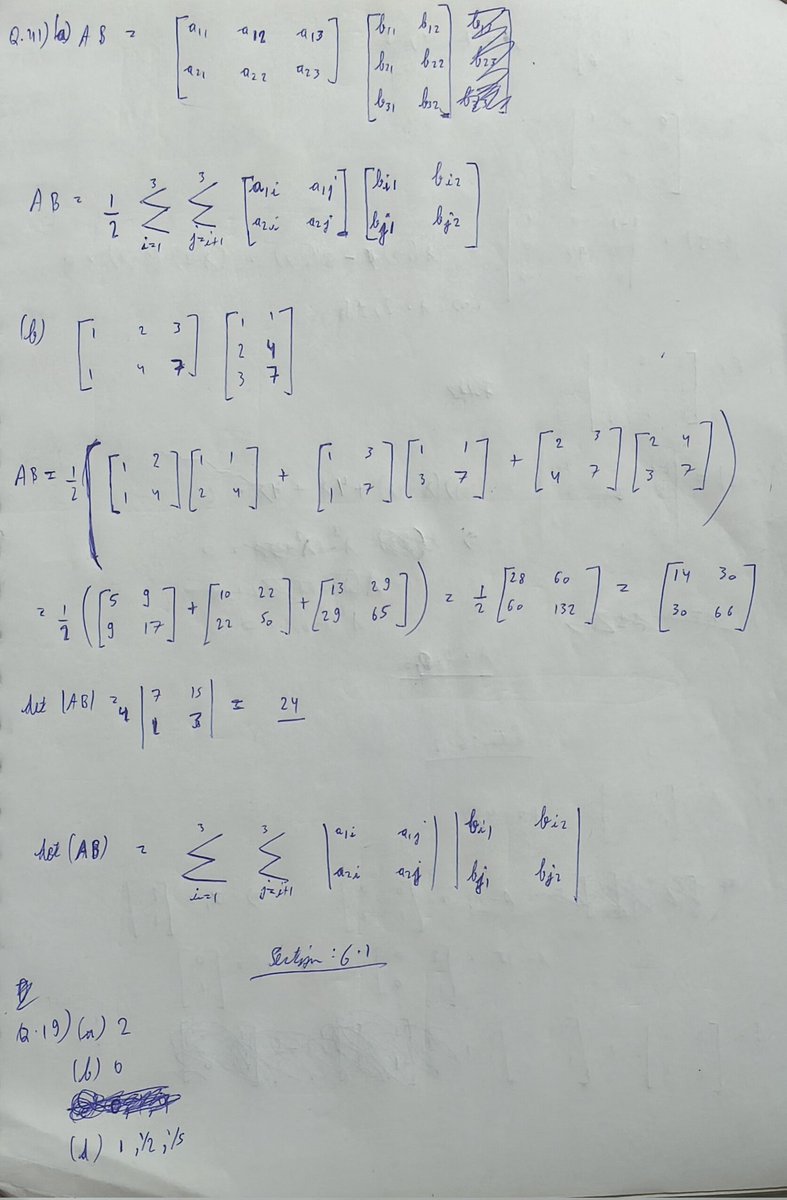 Q.41) (a) AB = [a11 a12 a13; a21 a22 a23] [b11 b12; b21 b22; b31 b32]
AB = 1/2 Σ_{i=1}^{3} Σ_{j=i+1}^{3} [a1i a1j; a2i a2j] [bi1 bi2; bj1 bj2]
(b) [1 2 3; 1 4 7] [1 1; 2 4; 3 7]
AB = 1/2 ( [1 2; 1 4] [1 1; 2 4] + [1 3; 1 7] [1 1; 3 7] + [2 3; 4 7] [2 4; 3 7] )
= 1/2 ( [5 9; 9 17] + [10 22; 22 50] + [13 29; 29 65] ) = 1/2 [28 60; 60 132] = [14 30; 30 66]
det |AB| = 4 |7 15; 1 3| = 24
det (AB) = Σ_{i=1}^{3} Σ_{j=i+1}^{3} |a1i a1j; a2i a2j| |bi1 bi2; bj1 bj2|
Section : 6.1
Q.19) (a) 2
(b) 0
(d) 1, 1/2, 1/5